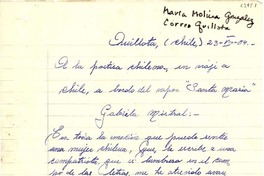 María Molina González
Correo Quillota
Quillota, (Chile) 23-
A la poetisa chilena, en viaje a
chile, a bordo del vapor "Santa María"
Gabriela Mistral:-
Con toda la emoción que puede sentir
una mujer chilena, que le escribe a una
compatriota que es lumbrera en el cam-
po de las letras, me he atrevido